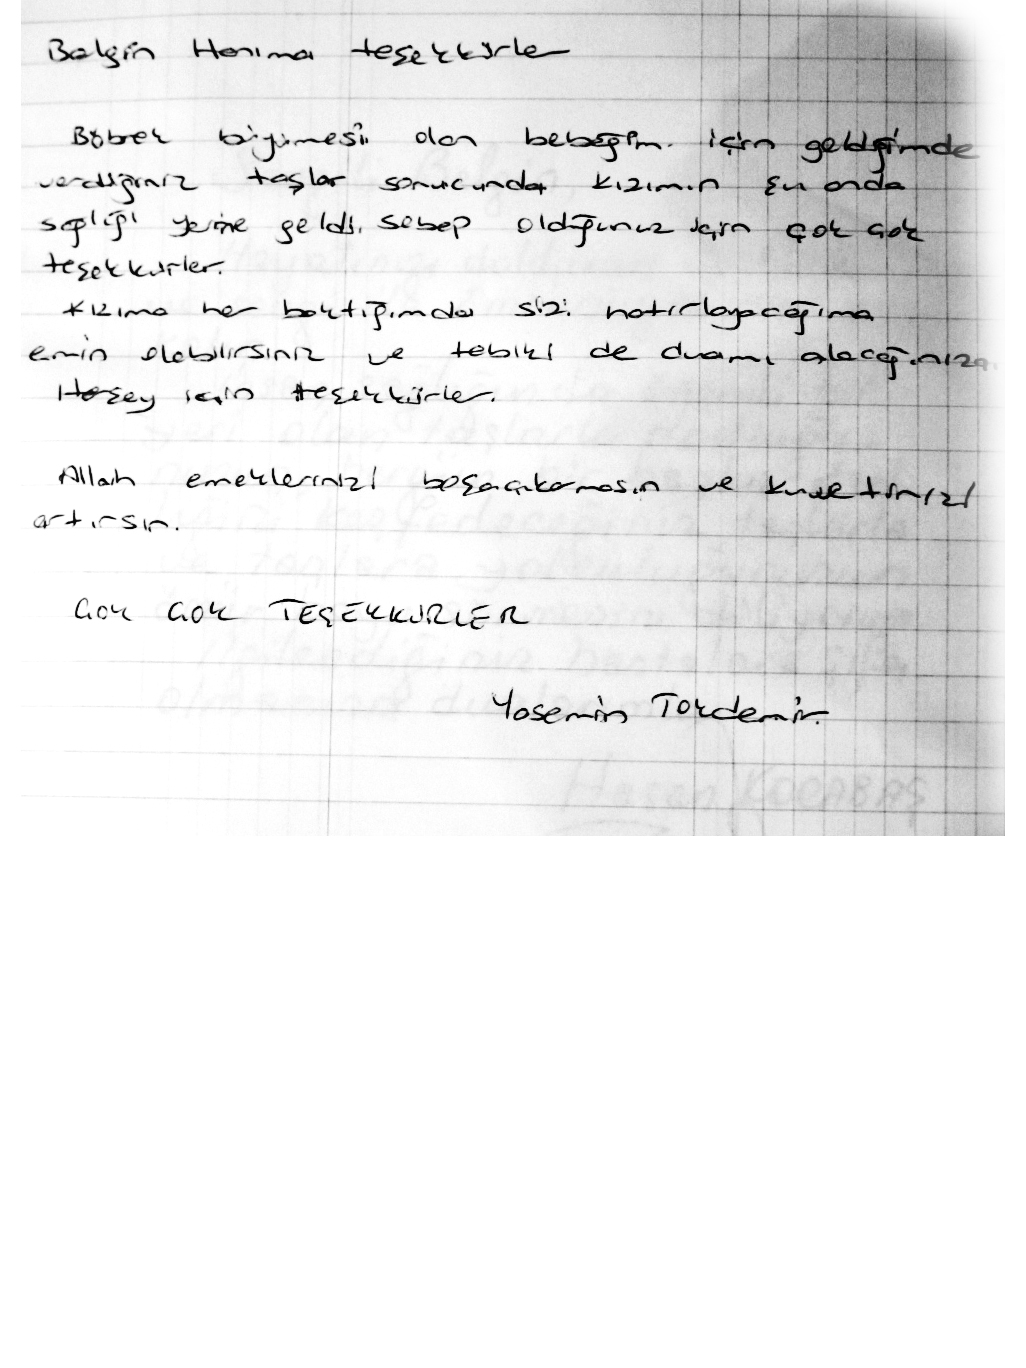 Balgin Hanıma teşekkürler
Böbrek büyümesi olan bebeğim için geldiğimde
verdiğiniz taşlar sonucunda kızımın şu anda
sağlığı yerine geldi. sebep olduğunuz için çok çok
teşekkürler.
Kızıma her baktığımda sizi hatırlayacağıma
emin olabilirsiniz ve tabiki de duamı alacağınıza
Herşey için teşekkürler.
Allah emeklerinizi boşaçıkarmasın ve kuvvetinizi
artırsın.
ÇOK ÇOK TEŞEKKÜRLER
Yasemin Tokdemir.
Hasan KOCABAŞ